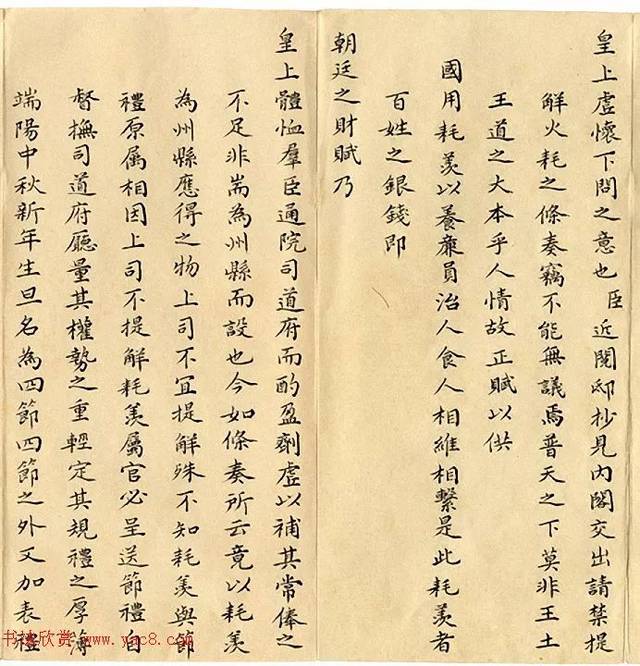 皇上虛懷下問之意也臣近閱邸抄見內閣交出請禁提
解火耗之條奏竊不能無議焉普天之下莫非王土
王道之大本乎人情故正賦以供
國用耗羨以養廉員治人食人相維相繫是此耗羨者
百姓之銀錢即
朝廷之財賦乃
皇上體恤羣臣通院司道府而酌盈劑虛以補其常俸之
不足非耑為州縣而設也今如條奏所云竟以耗羨
為州縣應得之物上司不宜提解殊不知耗羨與節
禮原属相因上司不提解耗羨屬官必呈送節禮自
督撫司道府廳量其權勢之重輕定其規禮之厚薄
端陽中秋新年生旦名為四節四節之外又加表禮
书法欣赏→www.yac8.com